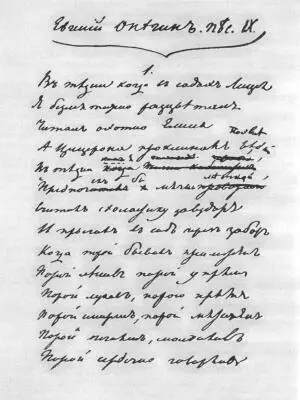 Евгеній Онѣгинъ. пѣс. IX.
1.
Въ те дни когда въ садахъ Лице
Я безмятежно разцветалъ
Читалъ охотно Елисея
А Цицерона проклиналъ
Въ те дни
мячикъ
Считалъ схоластику за вздоръ
И прыгалъ въ садъ черезъ заборъ
Когда порой бывалъ прилеженъ
Порой ленивъ порой упрямъ
Порой лукавъ, порою прямъ
Порой смиренъ, порой мятеженъ
Порой печаленъ, молчаливъ
Порой сердечно говорливъ